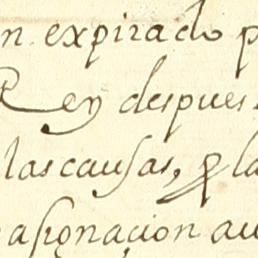 n expirado p
Rey despues
las causas, p la
asignacion au